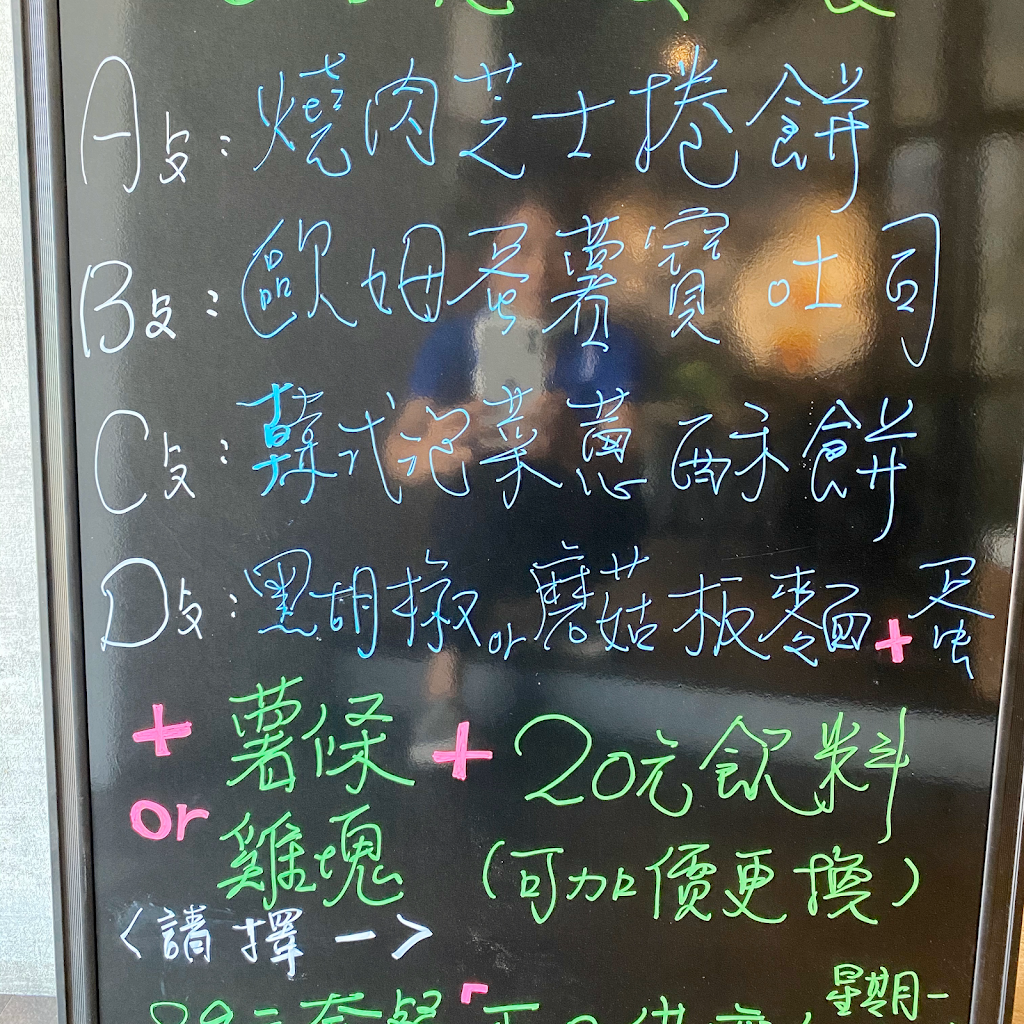 A餐:燒肉芝士捲餅
B餐:歐姆蛋薯寶吐司
C餐:韓式泡菜蔥酥餅
D餐:黑胡椒or蘑菇板麵+蛋
+薯條+20元飲料
or雞塊(可加價更換)
<請擇一>
星期一
元套餐